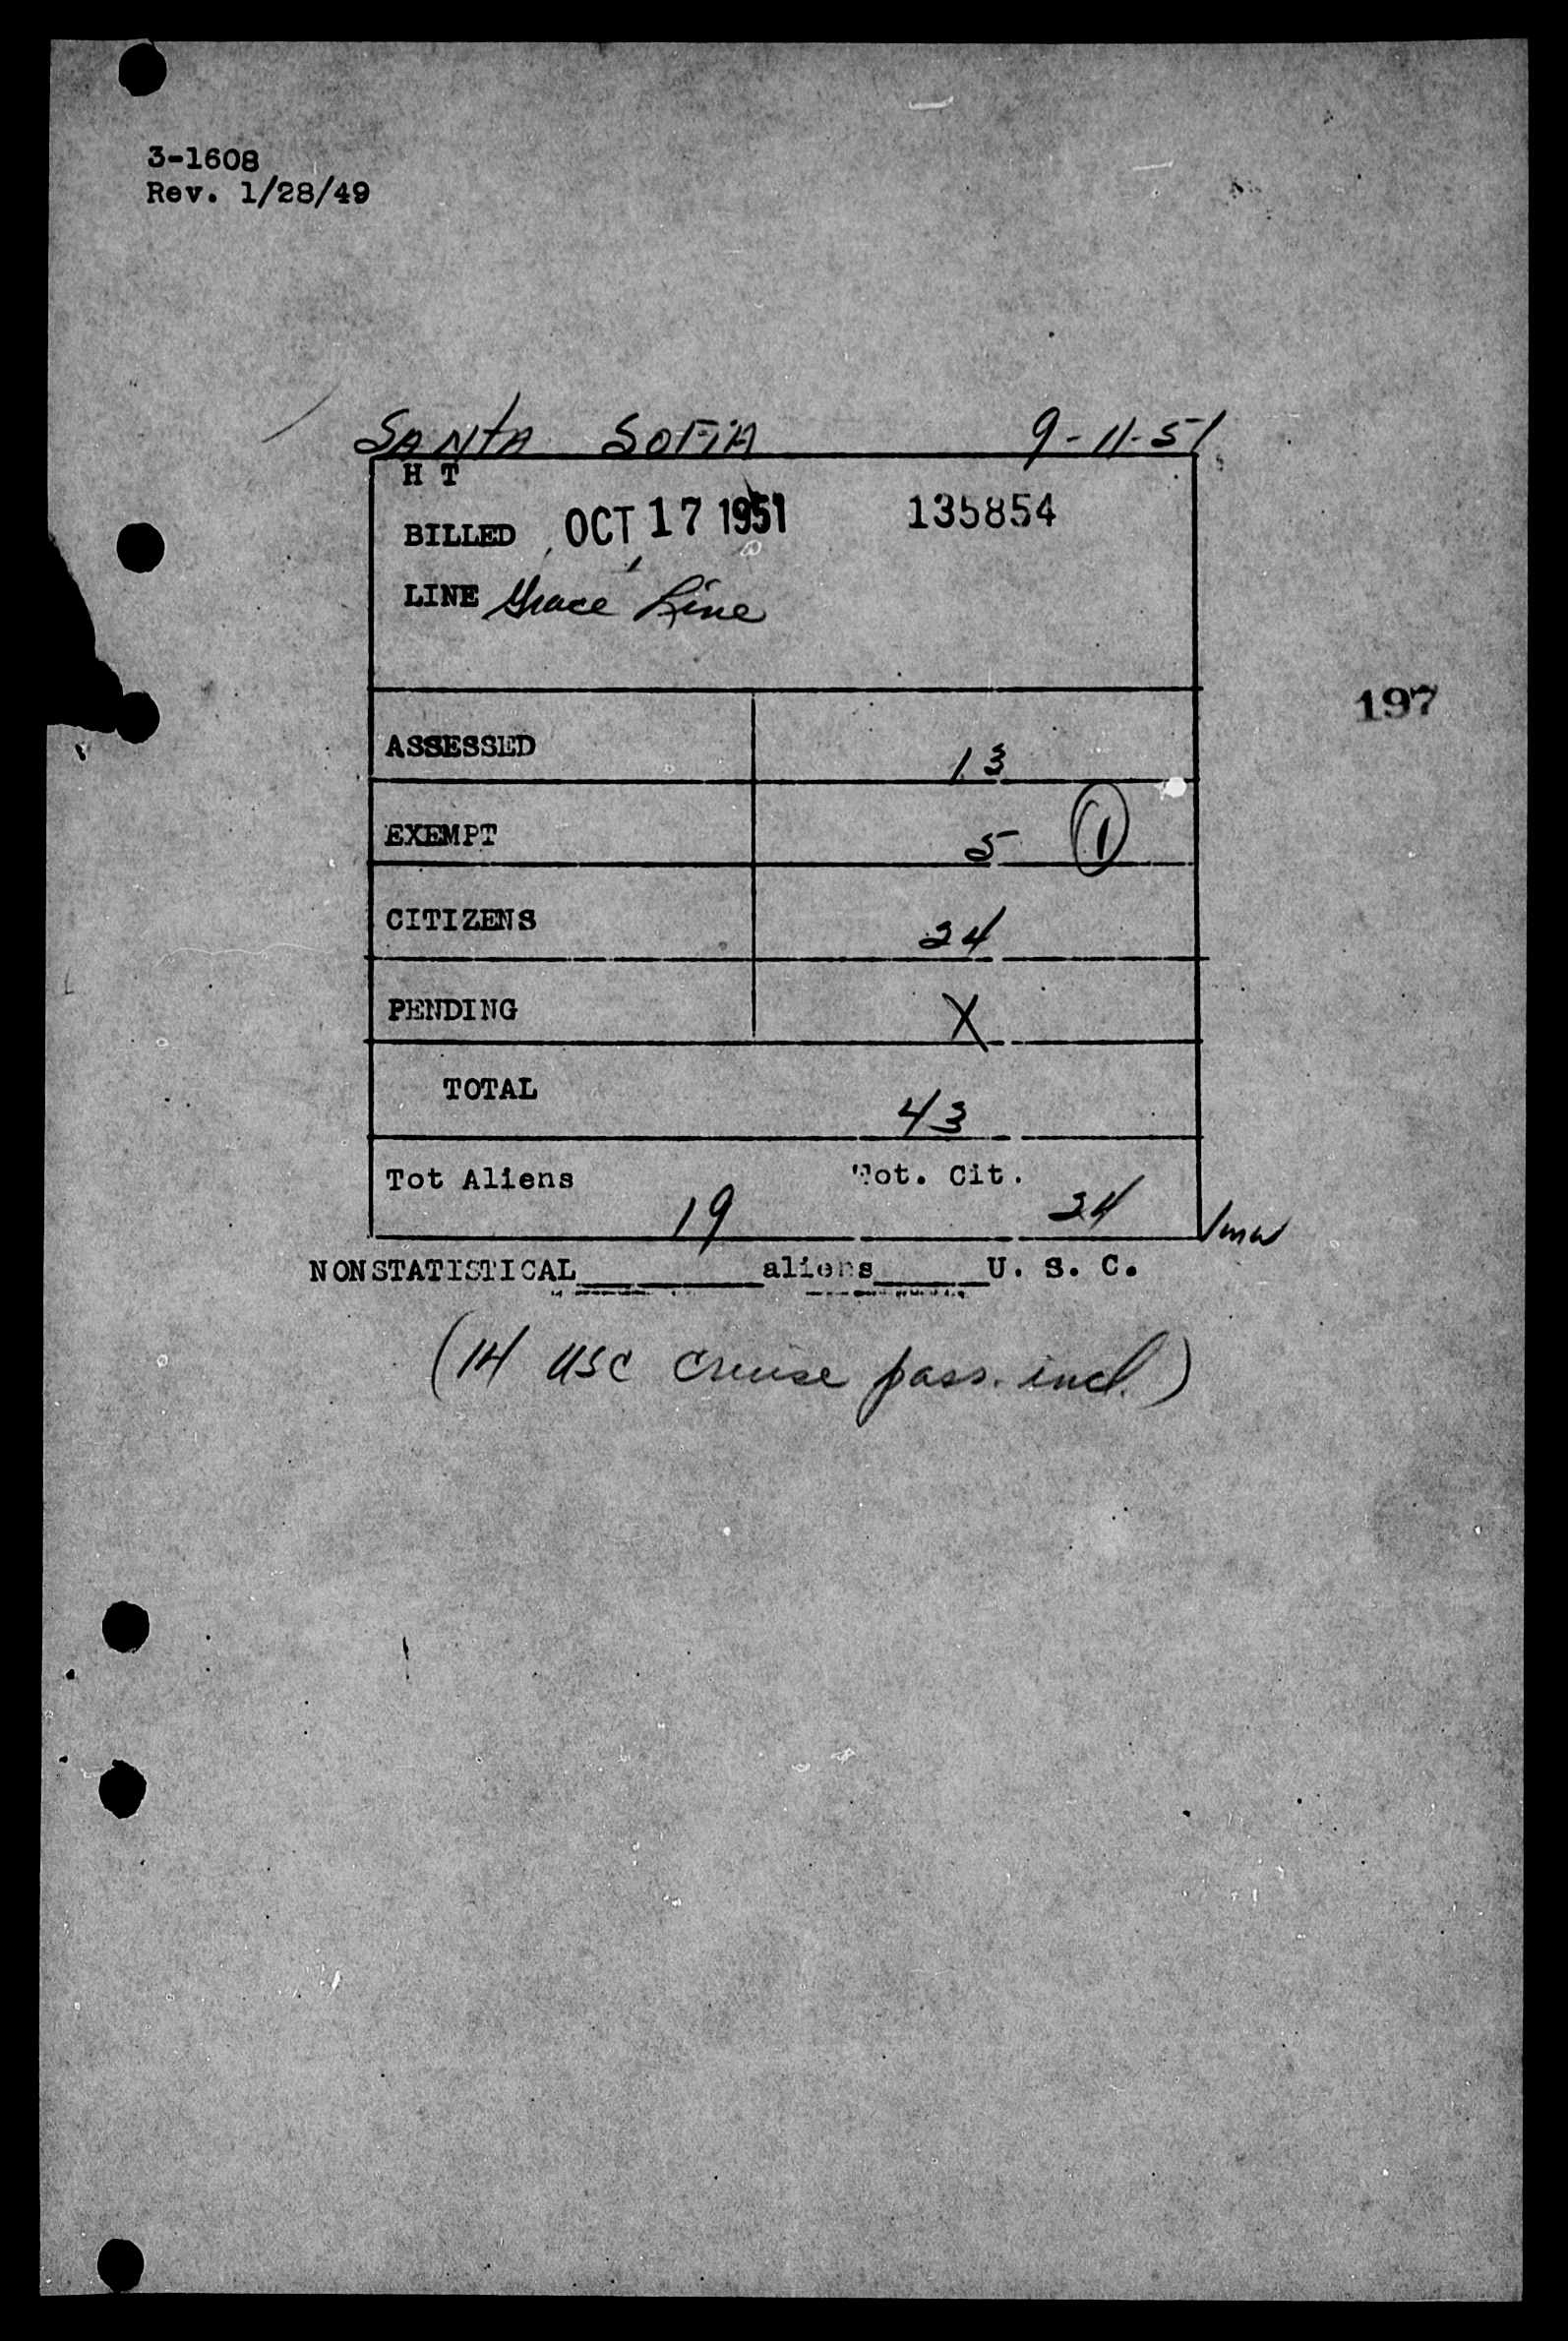 3-1608
Rev. 1/28/49
SANTA SOFIA 9-11-51
H T
BILLED OCT 17 1951 135854
LINE Grace Line
197
ASSESSED 13
EXEMPT 5 1
CITIZENS 24
PENDING X
TOTAL 43
Tot Aliens Tot. Cit.
19 24
NONSTATISTICAL aliens U. S. C.
(14 USC cruise pass. incl.)